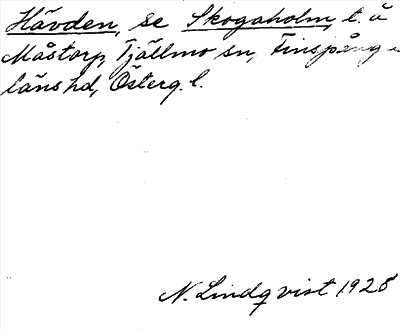 Hävden, se Skogaholm, t. å
Måstorp, Tjällmo sn, Finspång
läns hd, Österg. l.
N. Lindqvist 1928